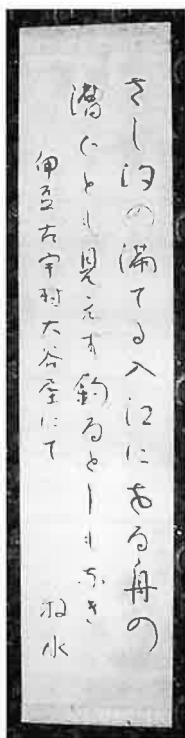 さし汐の満てる入江にある舟の
潜くとも見えす釣るとしもなき
伊豆古宇村大谷屋にて
牧水